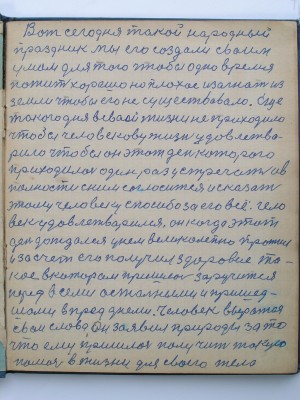 Вот сегодня такой народный
праздник мы его создали своим
умом для того чтобы одно время
пожить хорошо но плохое изагнать из
земли чтобы его не существовало. Еще
такого дня в твоей жизни не приходило
чтобы человеку в жизни удовлетво-
рило чтобы он этот ден которого
приходилося один, раз устретить и в
полности с ним согласится и сказать
этому человеку спосибо за его всё. чело
век удовлетворился, он когда этот
ден дождался у нем великолепно прожил
и за счет его получил здоровие та-
кое, в котором пришлося заручится
перед всеми остальными и пришед-
шими вперед днями. Человек
свои слова Он заявил природы за то
что ему пришлося получит такую
помощ в жизни для своего тела